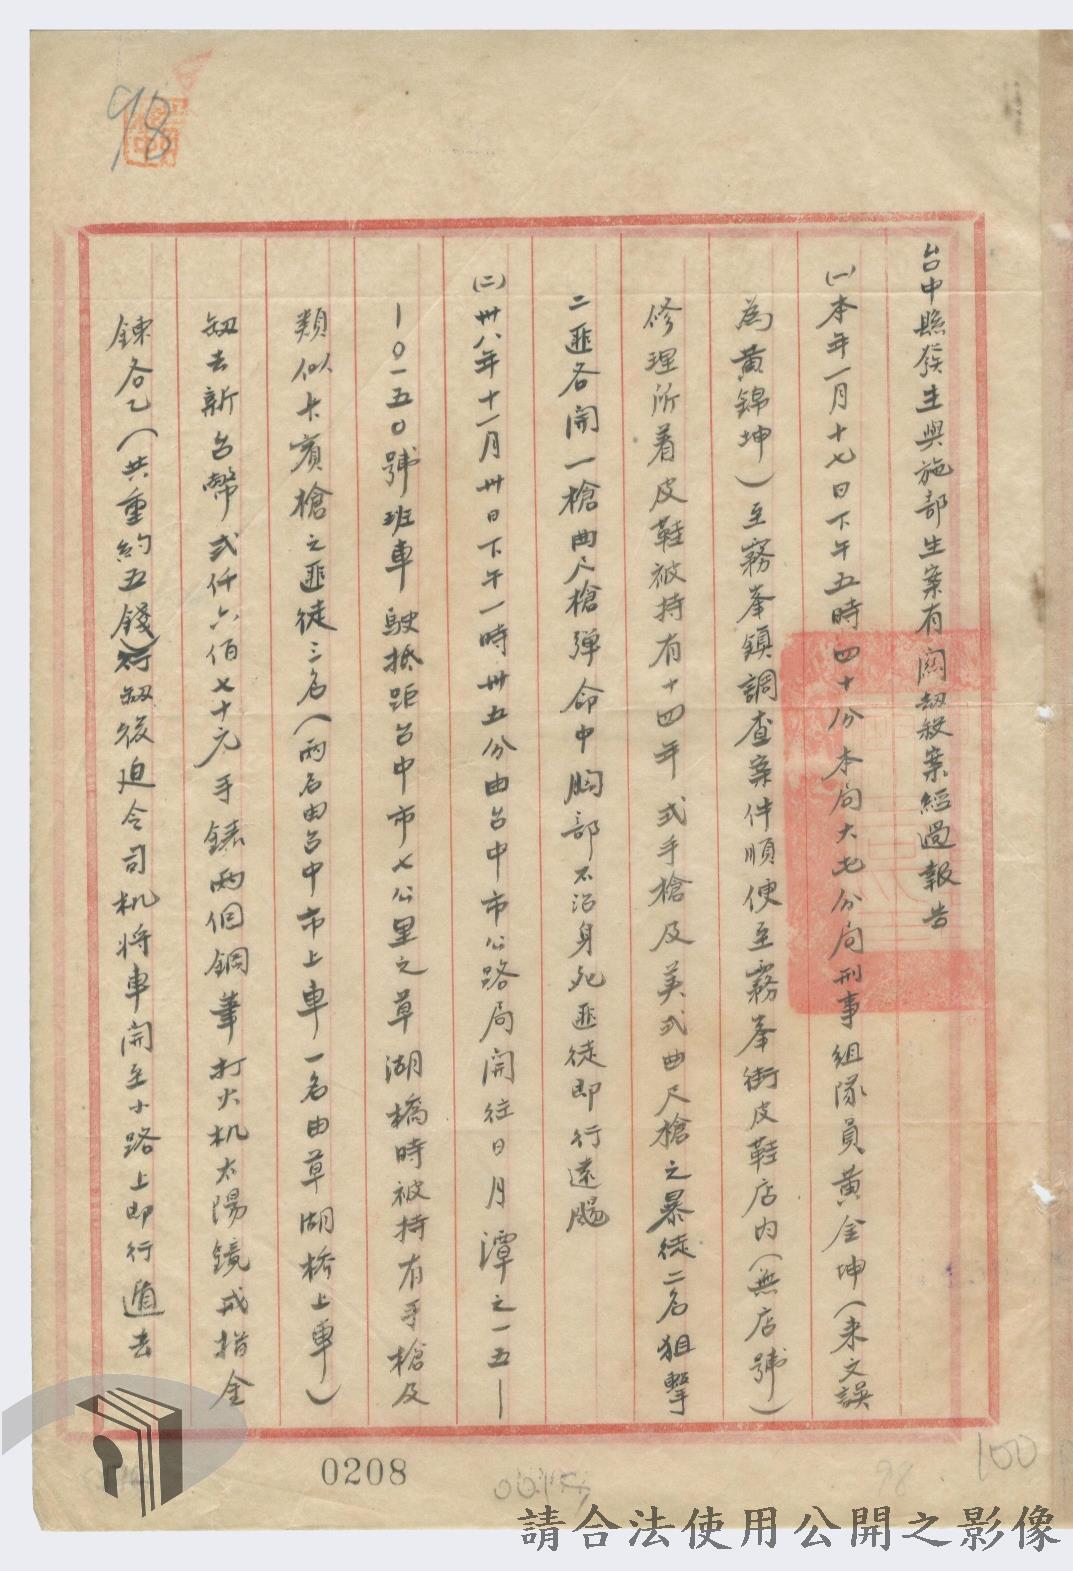 98
台中縣發生與施部生案有関刼殺案經過報告
(一)本年一月十七日下午五時四十分本局大屯分局刑事組隊員黄金坤(来文誤
為黄錦坤)至霧峯鎮調查案件順便至霧峯街皮鞋店内(無店號)
修理所着皮鞋被持有十四年式手槍及美式曲尺槍之暴徒二名狙擊
二匪各開一槍曲尺槍弹命中胸部不治身死匪徒即行遠颺
(二)卅八年十一月卅日下午一時卅五分由台中市公路局開往日月潭之一五—
一〇一五〇號班車駛抵距台中市七公里之草湖橋時被持有手槍及
類似卡賓槍之匪徒三名(兩名由台中市上車一名由草湖橋上車)
刼去新台幣弍仟六佰七十元手錶兩個鋼筆打火机太陽鏡戒指金
鍊各乙(共重約五錢)刼後迫令司机将車開至小路上即行遁去
0208
98
100
請合法使用公開之影像